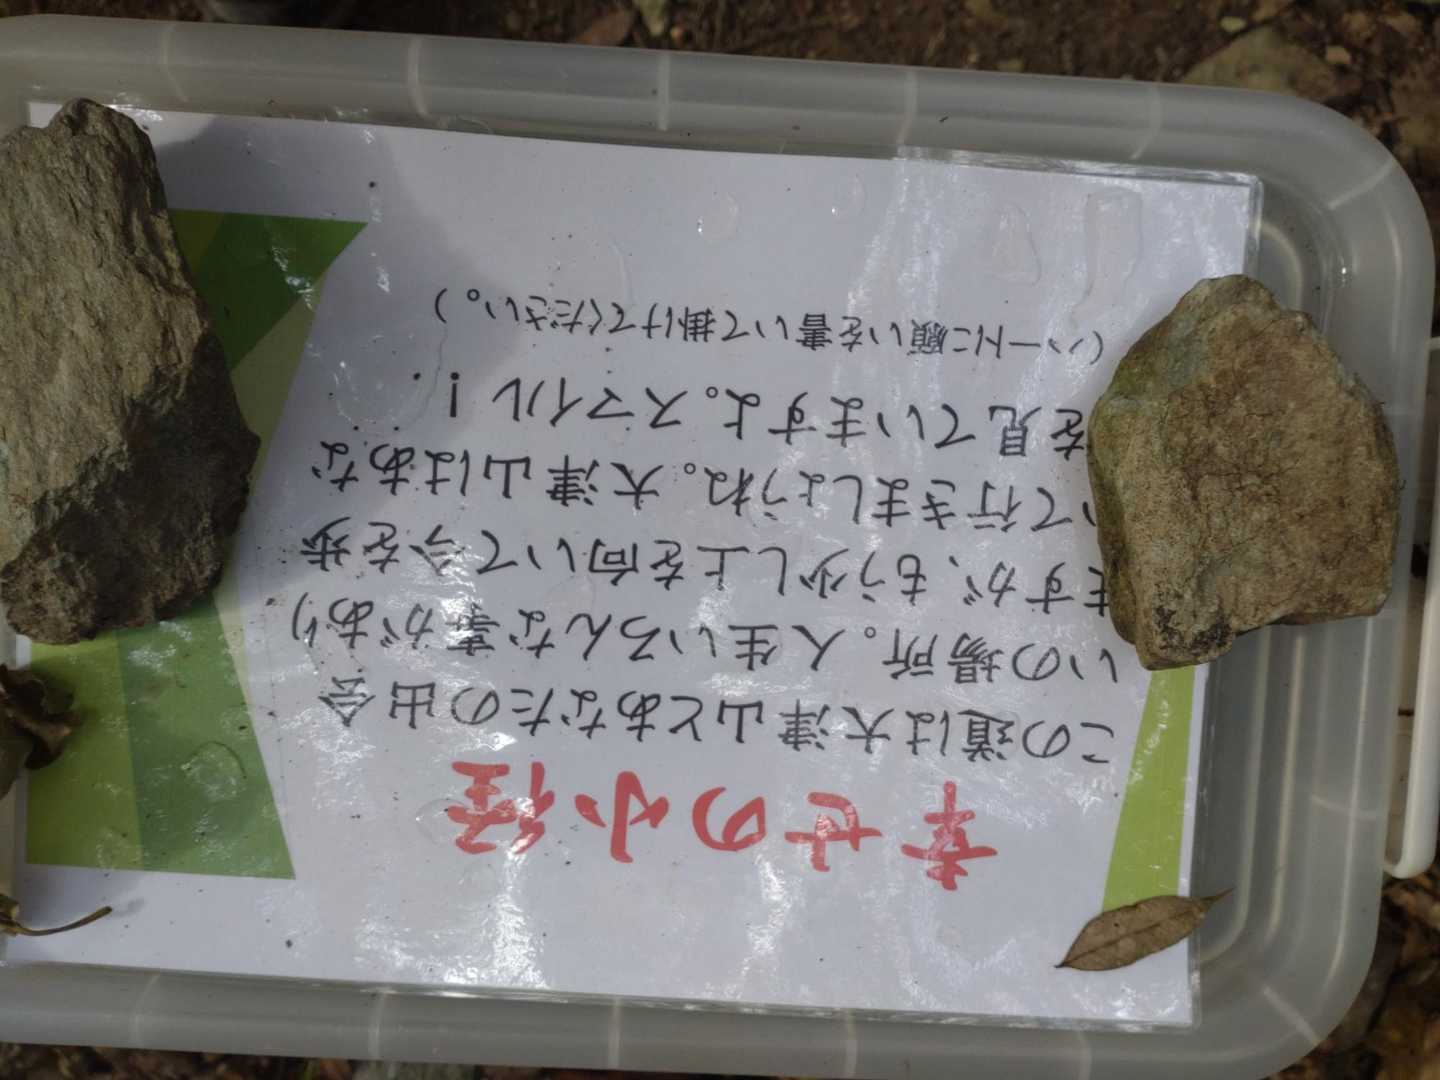 幸せの小径
この道は大津山とあなたの出会
いの場所。人生いろんな事があり
ますが、もう少し上を向いて今を歩
いて行きましょうね。大津山はあな
を見ていますよ。スマイル！
（ハートに願いを書いて掛けてください。）